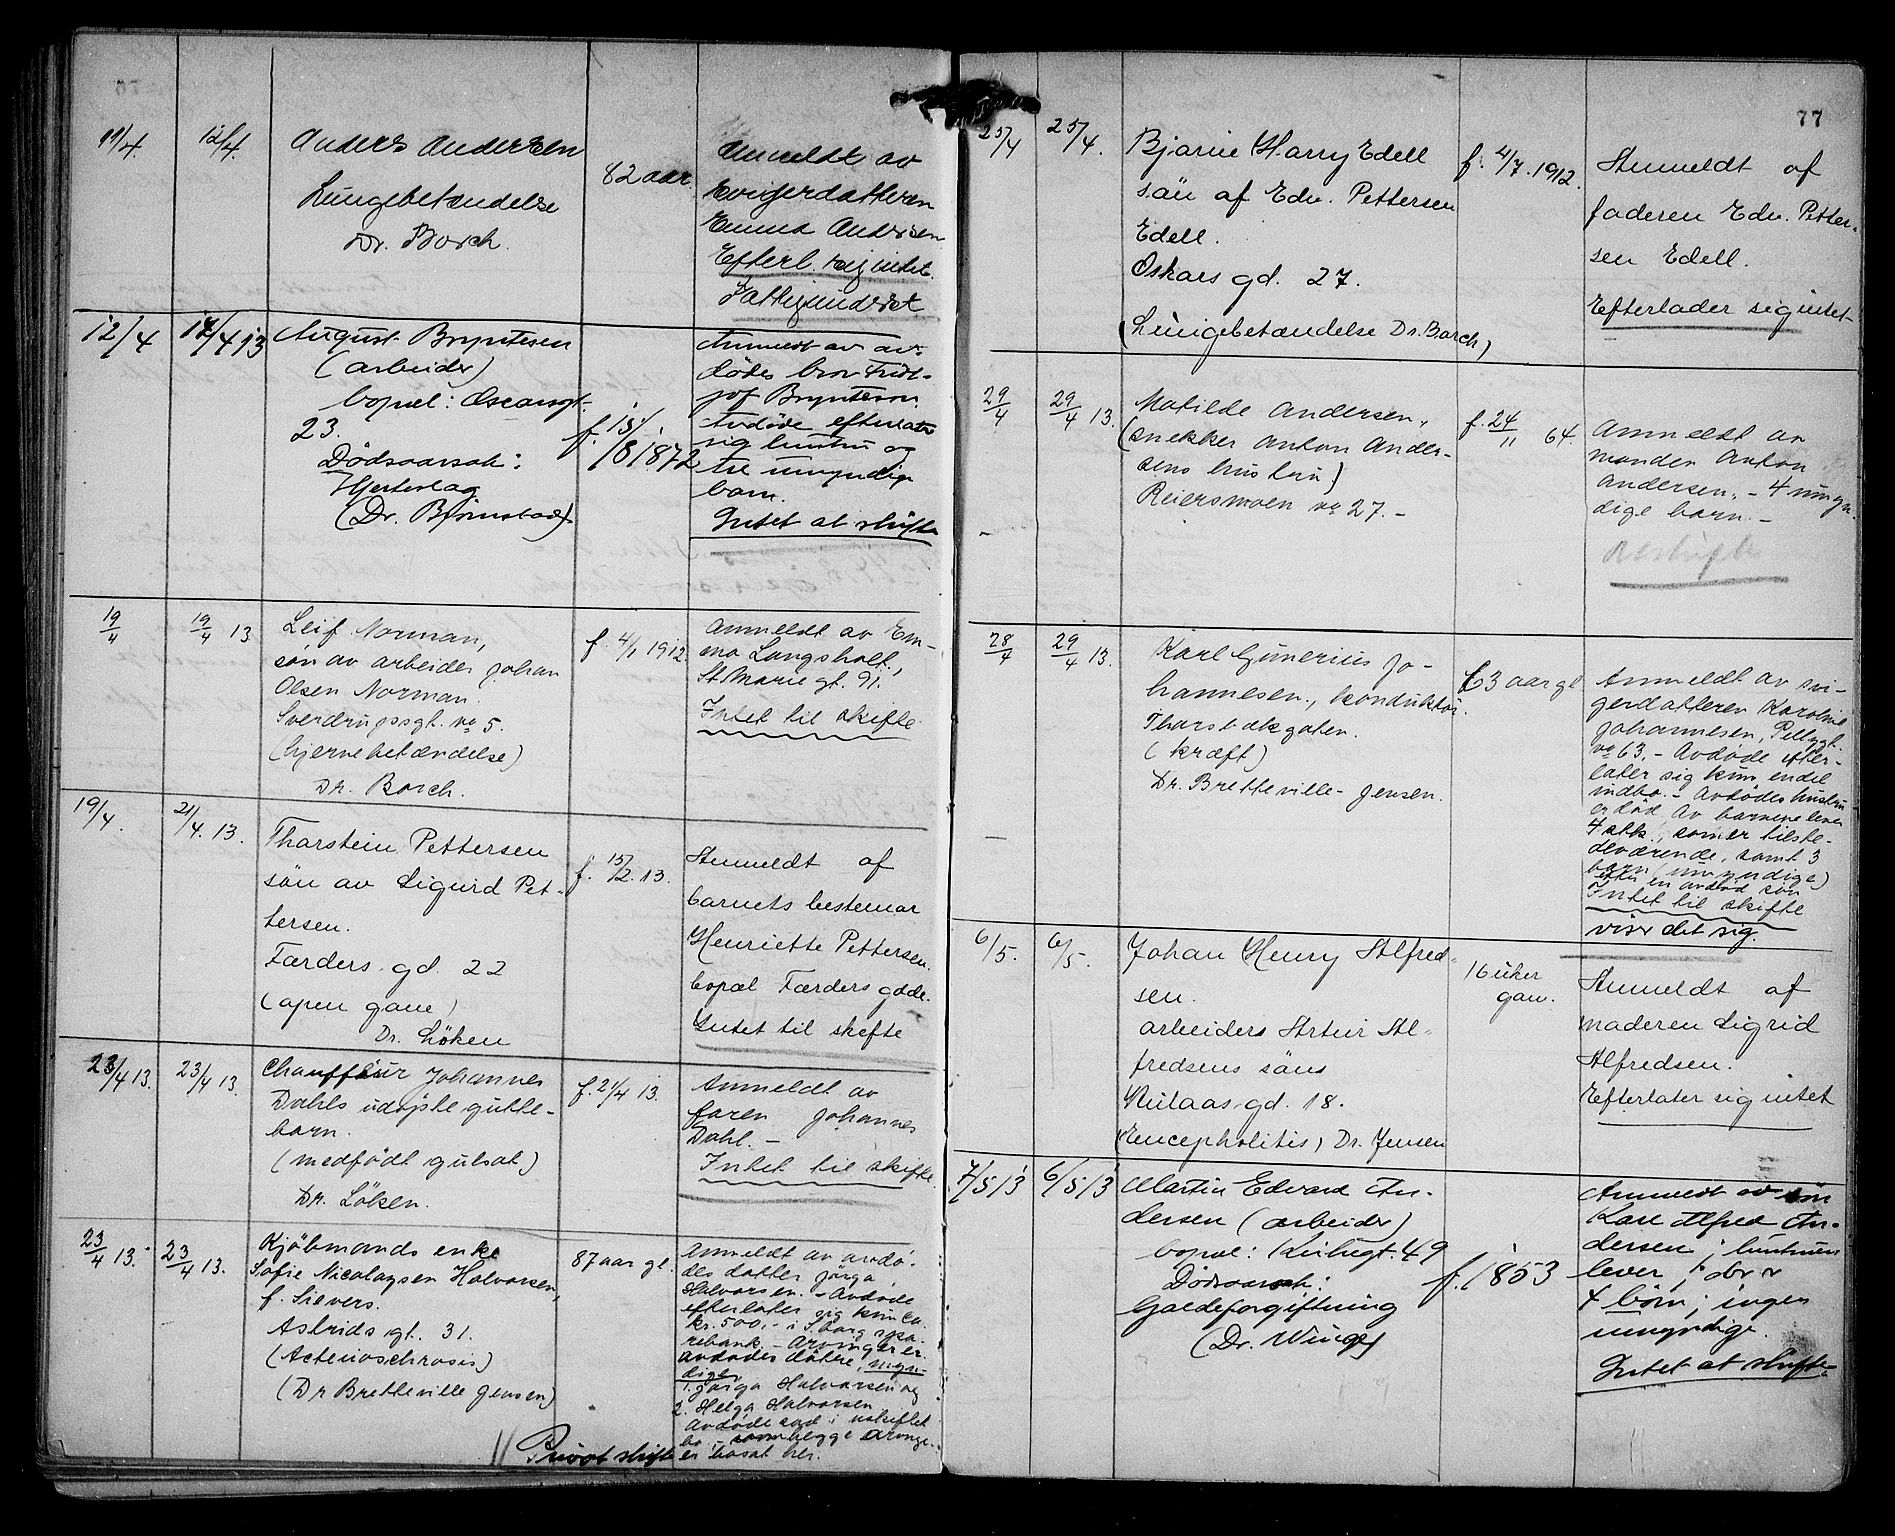 76
11/4. 12/4.
Anders Andersen
Lungebetændelse
Dr. Borch.
82 aar
Anmeldt av
svigerdatteren
Emma Andersen
Efterl. sig intet.
Fattigunderst.
12/4 14/4 13
August Bryntesen
(arbeider)
bopæl: Oscarsgt.
23.
Dødsaarsak:
Hjerteslag
(Dr. Bjørnstad)
f. 15/8 1872
Anmeldt av av-
dødes bror Fridt-
jof Bryntesen.
Avdøde efterlater
sig hustru og
tre umyndige
barn.
Intet at skifte
19/4 19/4 13
Leif Norman,
søn av arbeider Johan
Olsen Norman.
Sverdrupsgt. no 5.
(hjernebetændelse)
Dr. Borch.
f. 4/1 1912.
Anmeldt av Em-
ma Langsholt,
St. Marie gt. 91.
Intet til skifte.
19/4. 21/4. 13.
Thorstein Pettersen
sön av Sigurd Pet-
tersen.
Færders gd. 22
(apen gane)
Dr. Löken
f. 15/2. 13.
Anmeldt af
barnets bestemor
Henriette Pettersen.
bopæl Færders gade.
Intet til skifte
23/4 13. 23/4 13.
Chauffeur Johannes
Dahls udøpte gutte-
barn.
(medfödt gulsot)
Dr. Löken.
f. 21/4 13.
Anmeldt av
faren Johannes
Dahl. -
Intet til skifte.
23/4 13. 23/4 13.
Kjöbmands enke
Sofie Nicolaysen Halvorsen,
f. Sievers.
Astrids gt. 31.
(Dr Bretteville Jensen)
87 aar gl.
Anmeldt av avdö-
des datter Jörga
Halvorsen. - Avdøde
efterlater sig kun ca.
kr. 500,- i S.borg spa-
rebank. - Arvinger er
avdødes døtre, myn-
dige
1. Jörga Halvorsen og
2. Helga Halvorsen
Avdøde sad i uskiftet
bo, som begge arvinge-
er bosat her.
Privat skifte
77
25/4 25/4.
Bjarne Harry Edell
sön af Edv. Pettersen
Edell.
Oskars gd. 27.
(Lungebetændelse Dr. Borch)
f. 4/7. 1912.
Anmeldt af
faderen Edv. Petter-
sen Edell.
Efterlader sig intet
29/4 29/4 13.
Matilde Andersen,
(snekker Anton Ander-
sens hustru)
Reiersmoen no 27. -
f. 24/11 64.
Anmeldt av
manden Anton
Andersen. - 4 umyn-
dige barn. -
28/4 29/4 13.
Karl Gunerius Jo-
hannesen, konduktør.
Tharsbækgaten.
(kræft)
Dr. Bretteville-Jensen.
63 aar gl
Anmeldt av svi-
gerdatteren Karoline
Johannesen, Pellygt.
no 63. - Avdøde efter-
later sig kun endel
indbo. - Avdødes hustru
er död Av barnene lever
4 stk., som er tilste-
deværende, samt 3
barn (umyndige)
efter en avdød søn
Intet til skifte
viser det sig.
6/5. 6/5.
Johan Henry Alfred-
sen.
arbeiders Artur Al-
fredsens söns
Nilaas gd. 18.
(Encepholitis) Dr. Jensen
16 uker
gam.
Anmeldt af
moderen Sigrid
Alfredsen.
Efterlater sig intet
7/5 13 6/5 13
Martin Edvard An-
dersen (arbeider)
bopæl: Kirkegt. 49
Dødsaarsak:
Galdeforgiftning
(Dr. Winge)
f. 1853
Anmeldt av søn
Karl Alfred An-
dersen; hustruen
lever; der er
4 børn; ingen
umyndige.
Intet at skifte.